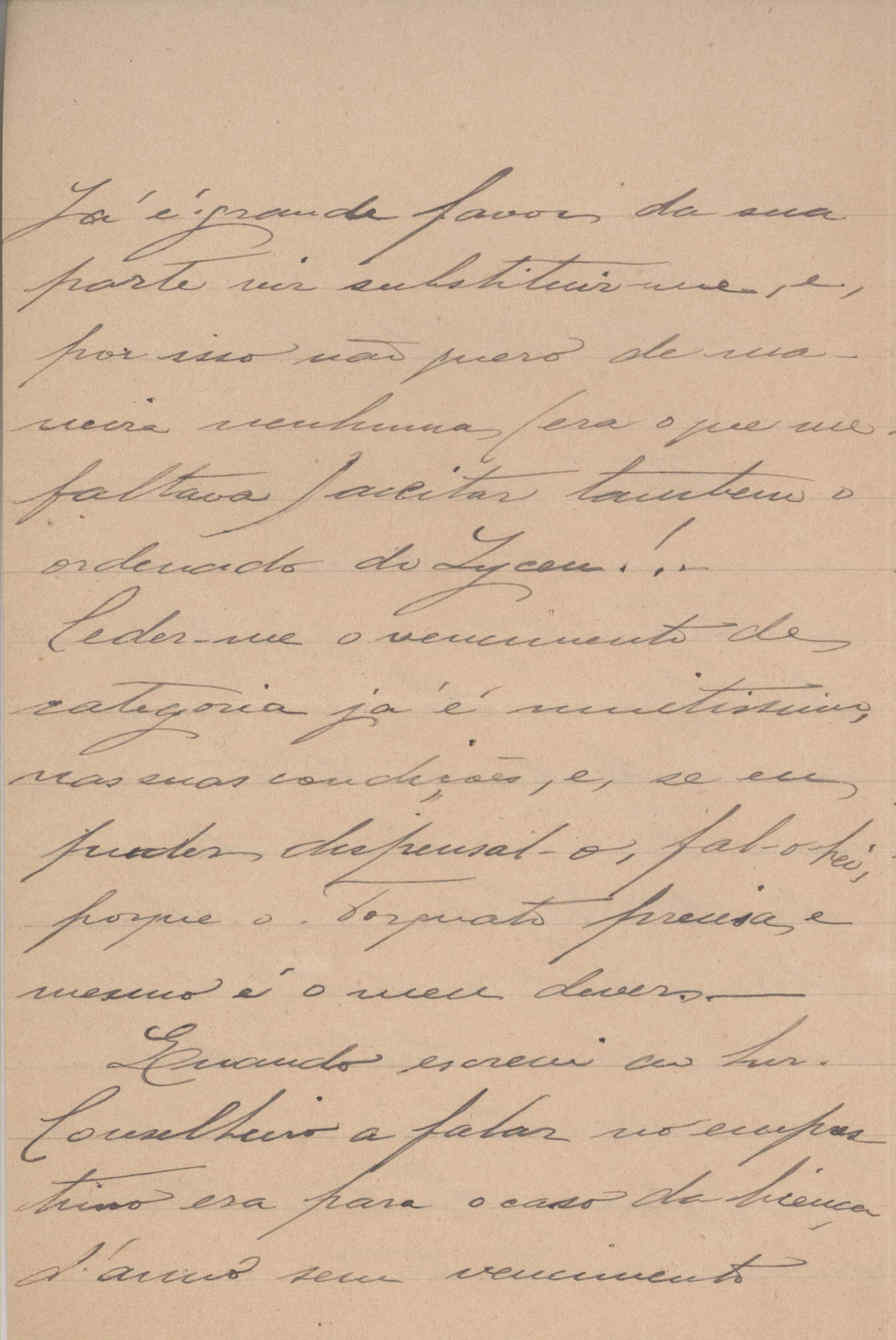 Já é grande favor da sua
parte vir substituir-me, e,
por isso não quero de ma-
neira nenhuma (era o que me
faltava) aceitar tambem o
ordenado do Lyceu!..
Ceder-me o vencimento de
categoria já é muitissimo,
nas suas condições, e, se eu
puder dispensal-o, fal-o-hei,
porque o Torquato precisa, e
mesmo é o meu dever.—
Quando escrevi ao Snr.
Conselheiro a falar no empres
timo era para o caso da licença
d'anno sem vencimento